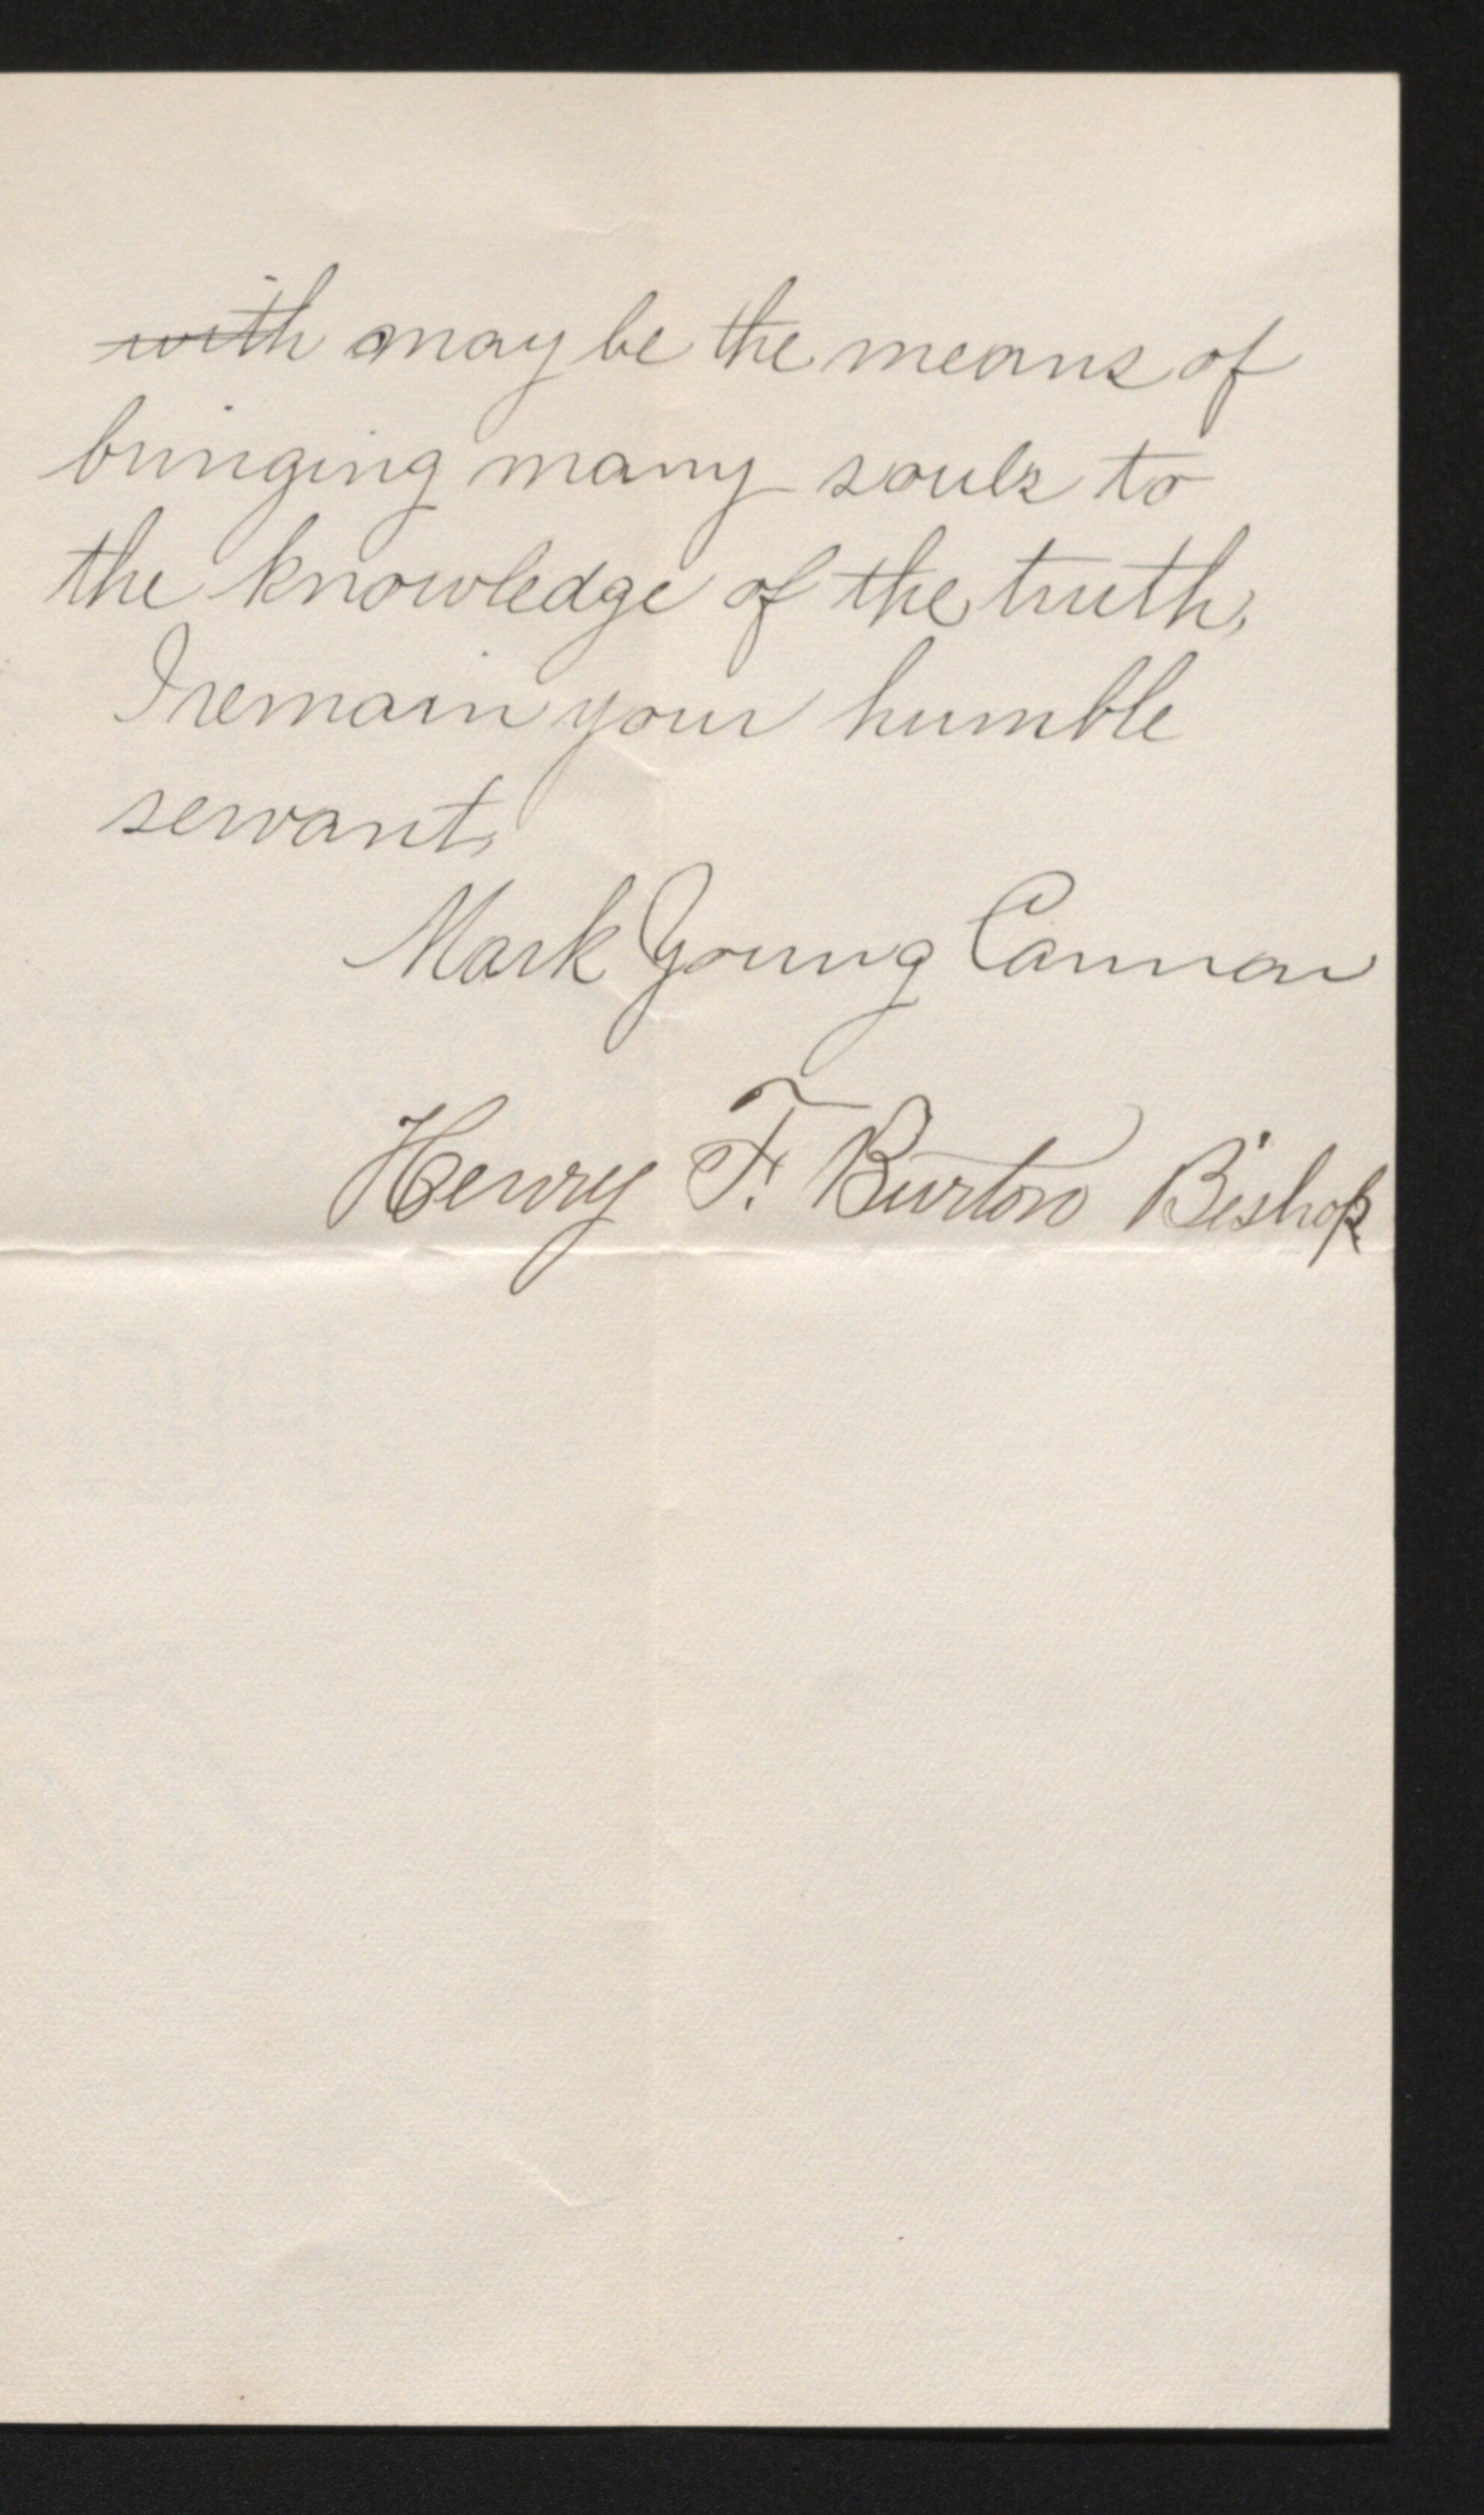 with may be the means of
bringing many souls to
the knowledge of the truth,
I remain your humble
servant,
Mark Young Cannon
Henry F. Burton Bishop